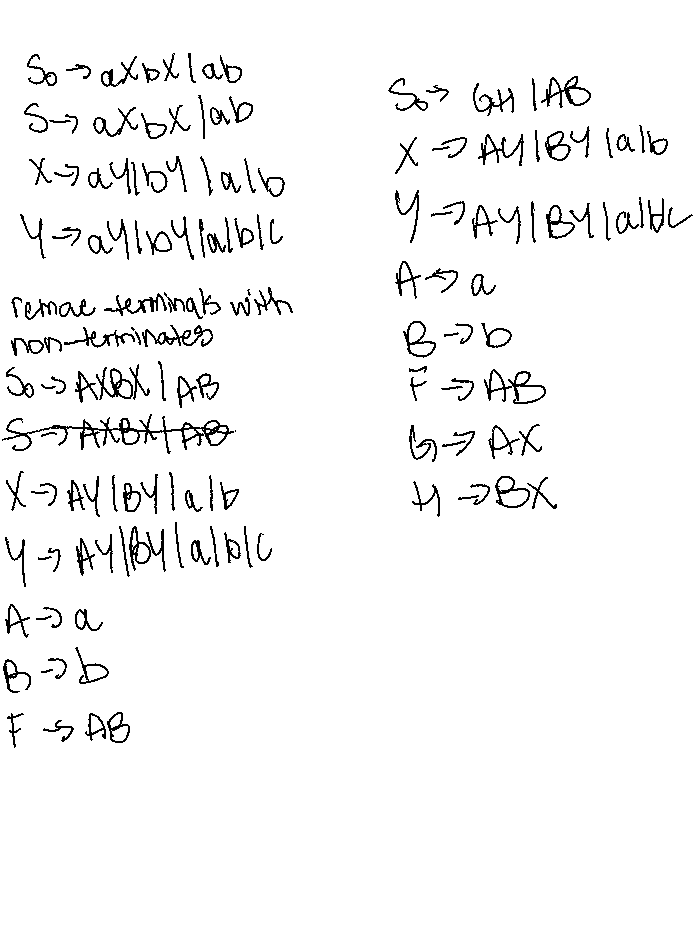 S₀ → aXbX | ab
S → aXbX | ab
X → aY | bY | a | b
Y → aY | bY | a | b | c
terminals with
non-terminates
S₀ → AXBX | AB
S → AXBX | AB
X → AY | BY | a | b
Y → AY | BY | a | b | c
A → a
B → b
F → AB
S₀ → GH | AB
X → AY | BY | a | b
Y → AY | BY | a | b | c
A → a
B → b
F → AB
G → AX
H → BX